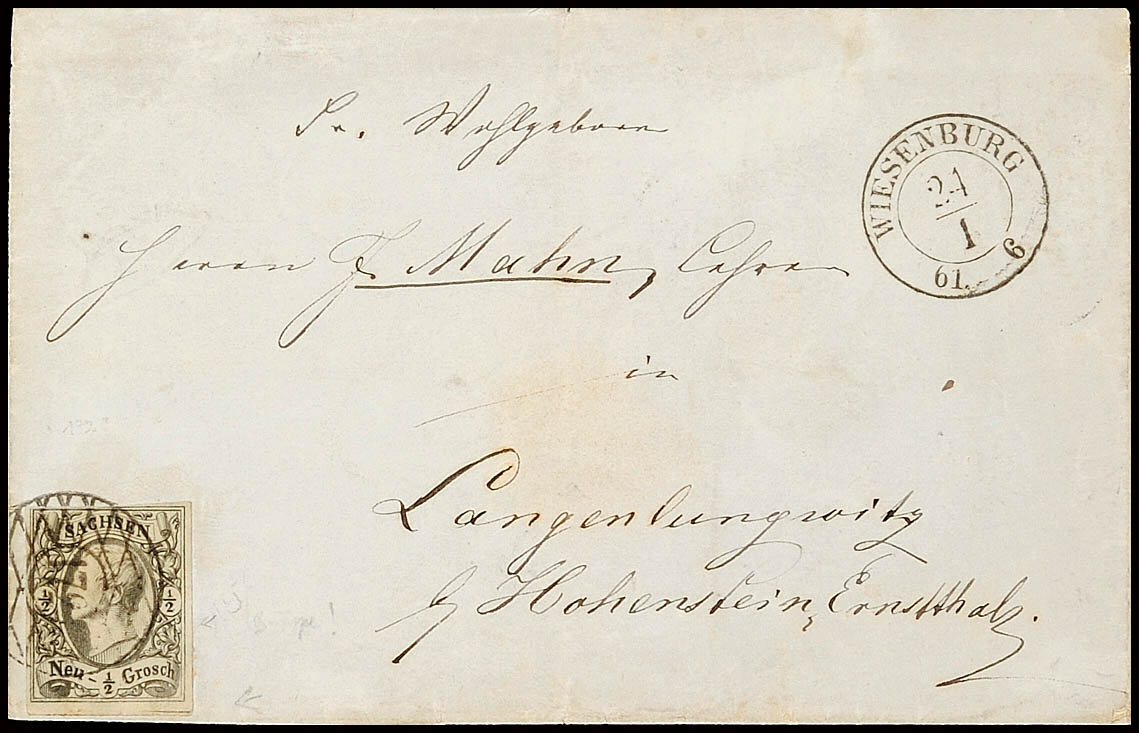 Sr. Wohlgeboren
Herrn F. Mahn, Lehrer
in
Langenlungwitz
b/ Hohenstein, Ernstthal.
WIESENBURG
21
1
61.
6
SACHSEN
½ ½
Neu- ½ Grosch